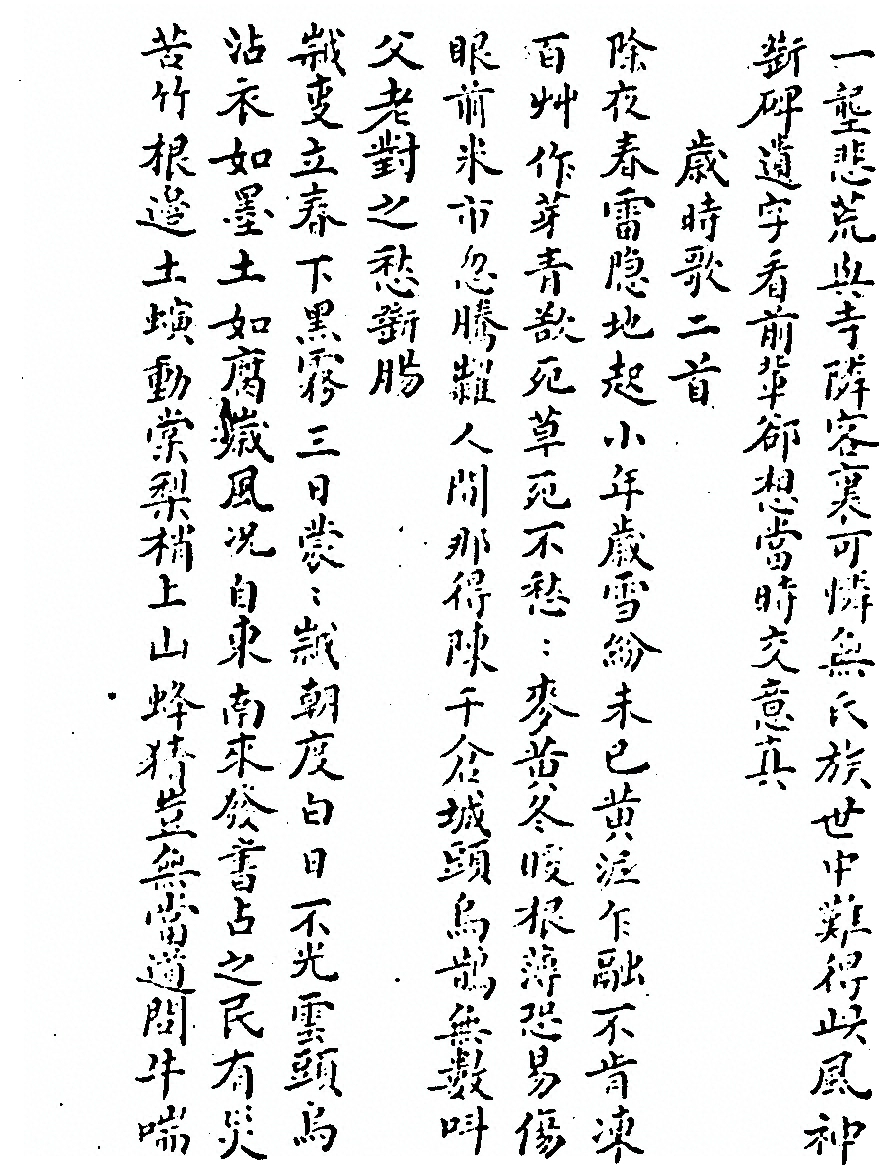 一壟悲荒與寺隣客裏可憐無氏族世中難得此風神
斷碑遺字看前輩卻想當時交意真
歲時歌二首
除夜春雷隐地起小年歲雪紛未已黄泥乍融不肯凍
百艸作芽青欲死草死不愁〻麥黄冬暖根薄恐易傷
眼前米市忽騰糶人間那得陳千仓城頭烏鵲無數叫
父老對之愁斷腸
歲立春下黑霧三日蒙〻朝度白日不光雲頭烏
沾衣如墨土如腐歲風况自東南來發書占之民有災
苦竹根邉土螾動棠梨梢上山蜂猜豈無當道問牛喘